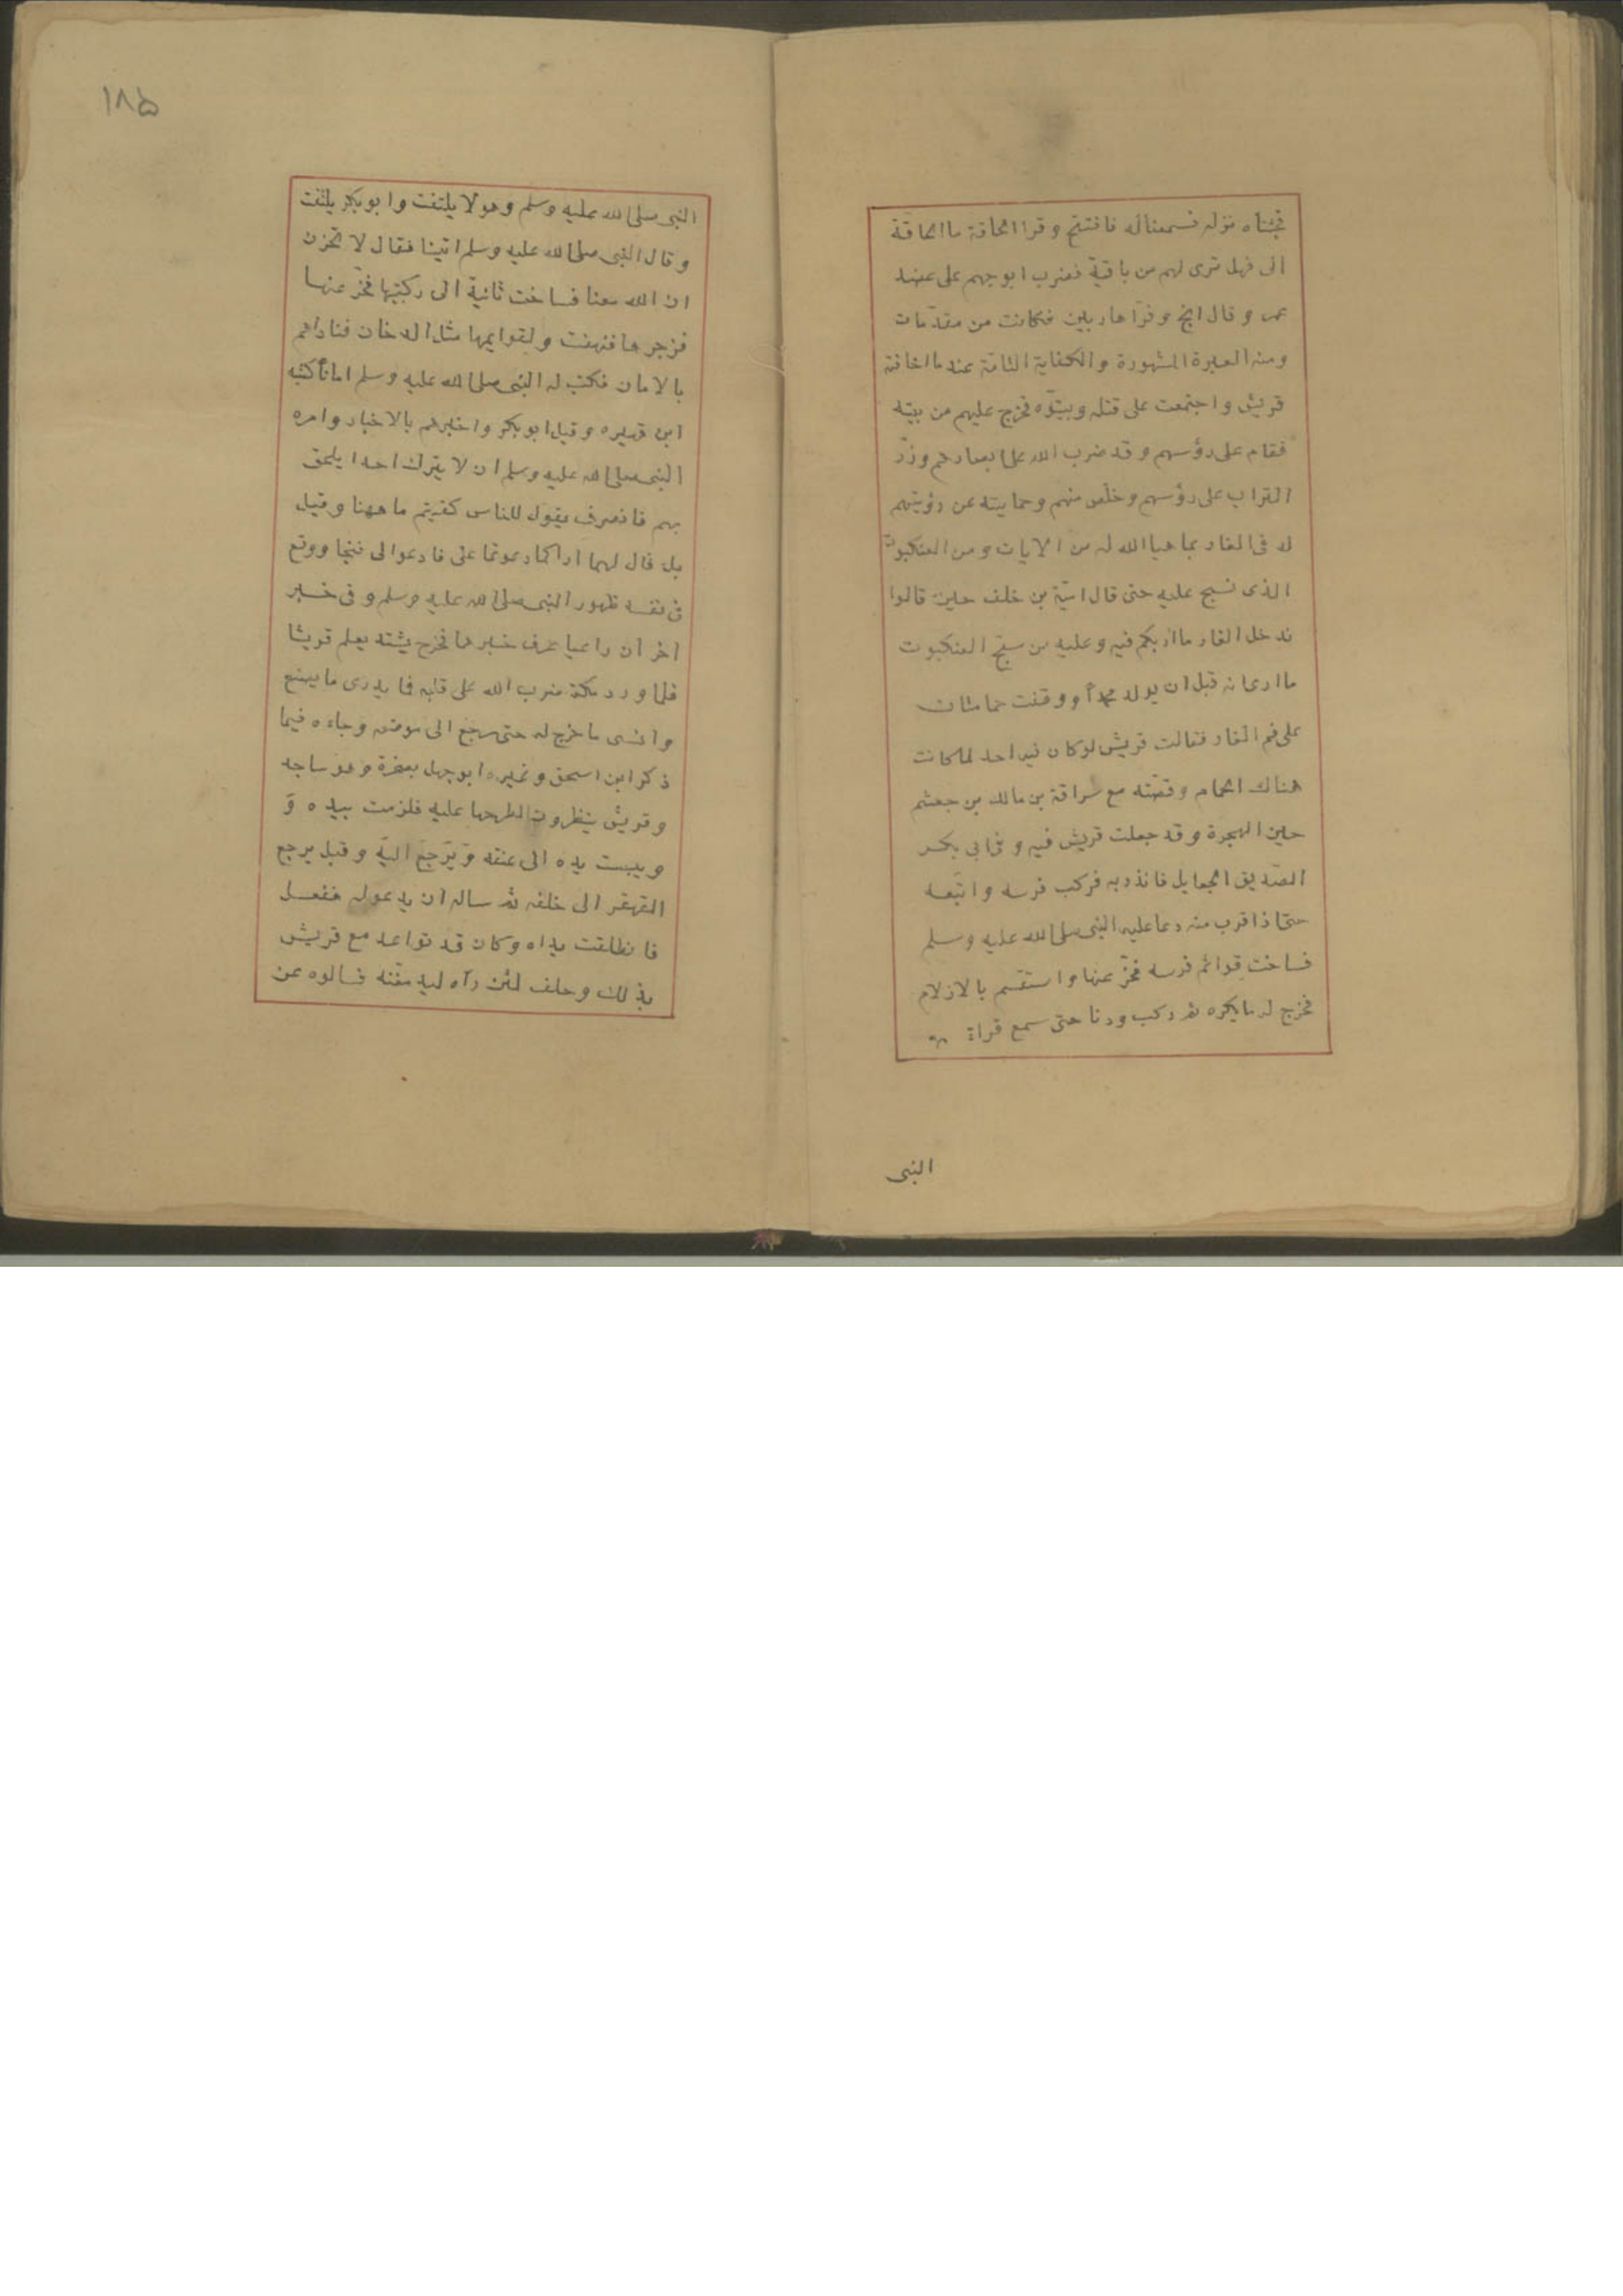 فجئناه منزله فسمعنا له فافتتح وقرا الحاقة ما الحاقة
الى فهل ترى لهم من باقية فضرب ابو جهم على عضد
عمر و قال انج و فرّا هاربين فكانت من مقدّمات
ومنه العبرة المشهورة والكفاية التامّة عند ما اخافته
قريش واجتمعت على قتله وبيتّوه فخرج عليهم من بيته
فقام على رؤسهم وقد ضرب الله على ابصارهم وذرّ
التراب على رؤسهم وخلص منهم وحمايته عن رؤيتهم
له فى الغار بما هيا الله له من الايات ومن العنكبوت
الذى نسج عليه حتى قال اميّة بن خلف حين قالوا
ندخل الغار ما اربكم فيه وعليه من نسج العنكبوت
ما ارى انه قبل ان يولد محمداً ووقفت حمامتان
على فم الغار فقالت قريش لو كان فيه احد لما كانت
هناك الحمام وقصّته مع سراقة بن مالك بن جعشم
حين الهجرة وقد جعلت قريش فيه و فى ابى بكر
الصّديق الجعايل فانذر به فركب فرسه واتبّعه
حتى اذا قرب منه دعا عليه النبى صلى الله عليه وسلم
فساخت قوائم فرسه فخرّ عنها واستقسم بالازلام
فخرج له ما يكره ثم ركب ودنا حتى سمع قراة
النبى
١٨٥
النبى صلى الله عليه وسلم وهو لا يلتفت وابو بكر يلتفت
وقال النبى صلى الله عليه وسلم اتينا فقال لا تحزن
ان الله معنا فساخت ثانية الى ركبتيها فخرّ عنها
فزجرها فنهضت ولقوايمها مثل الدخان فناداهم
بالامان فكتب له النبى صلى الله عليه وسلم اماناً كتبه
ابن فهيره وقيل ابو بكر واخبرهم بالاخبار وامره
النبى صلى الله عليه وسلم ان لا يترك احدا يلحق
بهم فانصرف يقول للناس كفيتم ما ههنا وقيل
بل قال لهما اراكما دعوتما على فادعوا لى فنجا ووقع
فى نفسه ظهور النبى صلى الله عليه وسلم وفى خبر
اخر ان راعيا عرف خبرهما فخرج يشتد يعلم قريشا
فلما ورد مكة ضرب الله على قلبه فما يدرى ما يصنع
وانسى ما خرج له حتى رجع الى موضعه وجاءه فيما
ذكر ابن اسحق وغيره ابو جهل بصخرة وهو ساجد
وقريش ينظرون ليطرحها عليه فلزمت بيده وَ
ويبست يده الى عنقه وَيَرجع اليَه وقيل يرجع
القهقر الى خلفه ثم ساله ان يدعو له ففعل
فانطلقت يداه وكان قد تواعد مع قريش
بذلك وحلف لئن رآه ليدمغنه فسالوه عن